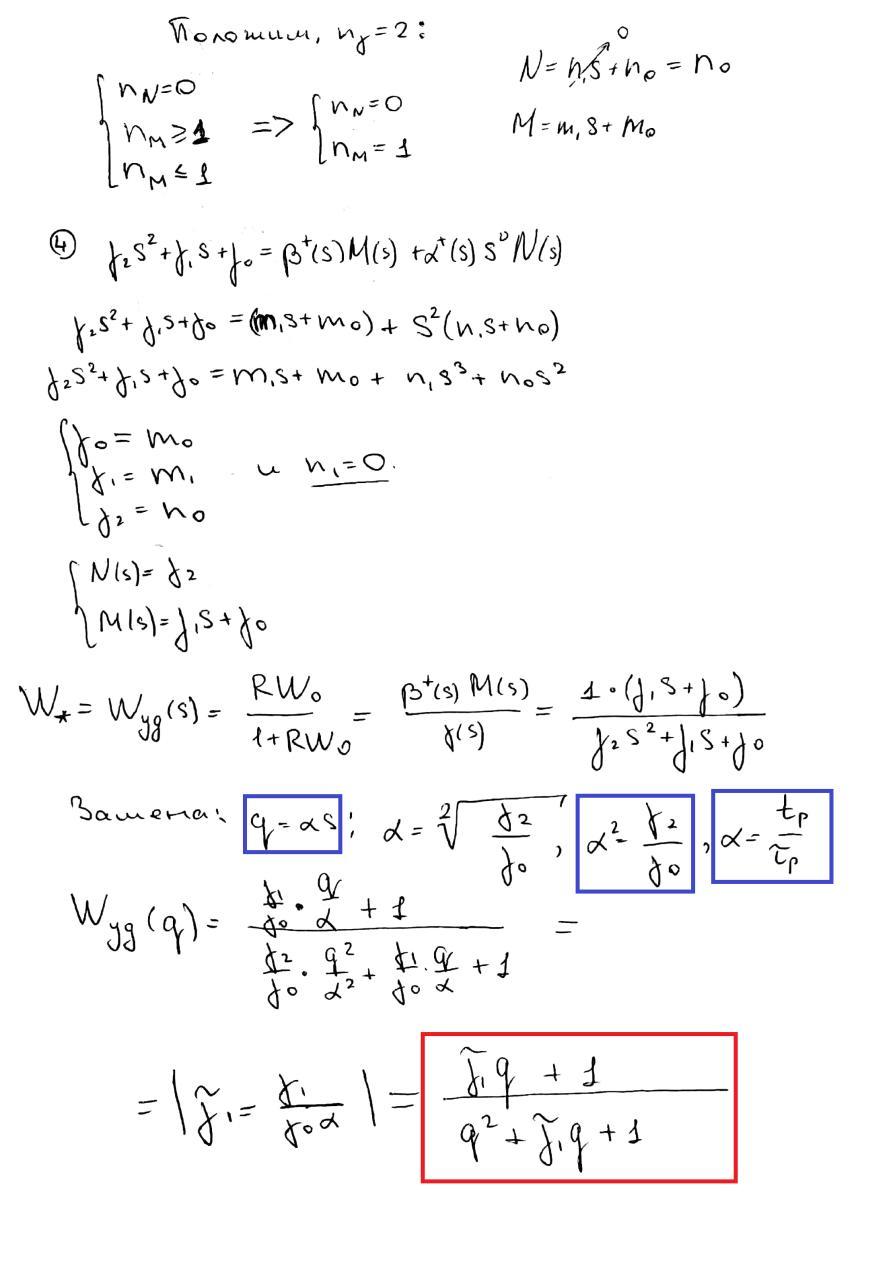 Положим, nγ=2:
{ n_N=0
n_M≥1
n_M≤1 => { n_N=0
n_M=1
N=n₁s+n₀=n₀
0
M=m₁s+m₀
④ γ₂s²+γ₁s+γ₀=β⁺(s)M(s)+α⁺(s)s^ν N(s)
γ₂s²+γ₁s+γ₀=(m₁s+m₀)+s²(n₁s+n₀)
γ₂s²+γ₁s+γ₀=m₁s+m₀+n₁s³+n₀s²
{ γ₀=m₀
γ₁=m₁ и n₁=0.
γ₂=n₀
{ N(s)=γ₂
M(s)=γ₁s+γ₀
W_*=W_yg(s)=RW₀/(1+RW₀)=β⁺(s)M(s)/γ(s)=1·(γ₁s+γ₀)/(γ₂s²+γ₁s+γ₀)
Замена: q=αs; α=²√(γ₂/γ₀), α²=γ₂/γ₀, α=tₚ/τ̃ₚ
W_yg(q)=(γ₁/γ₀·q/α+1)/(γ₂/γ₀·q²/α²+γ₁/γ₀·q/α+1)=
=|γ̃₁=γ₁/(γ₀α)|=(γ̃₁q+1)/(q²+γ̃₁q+1)